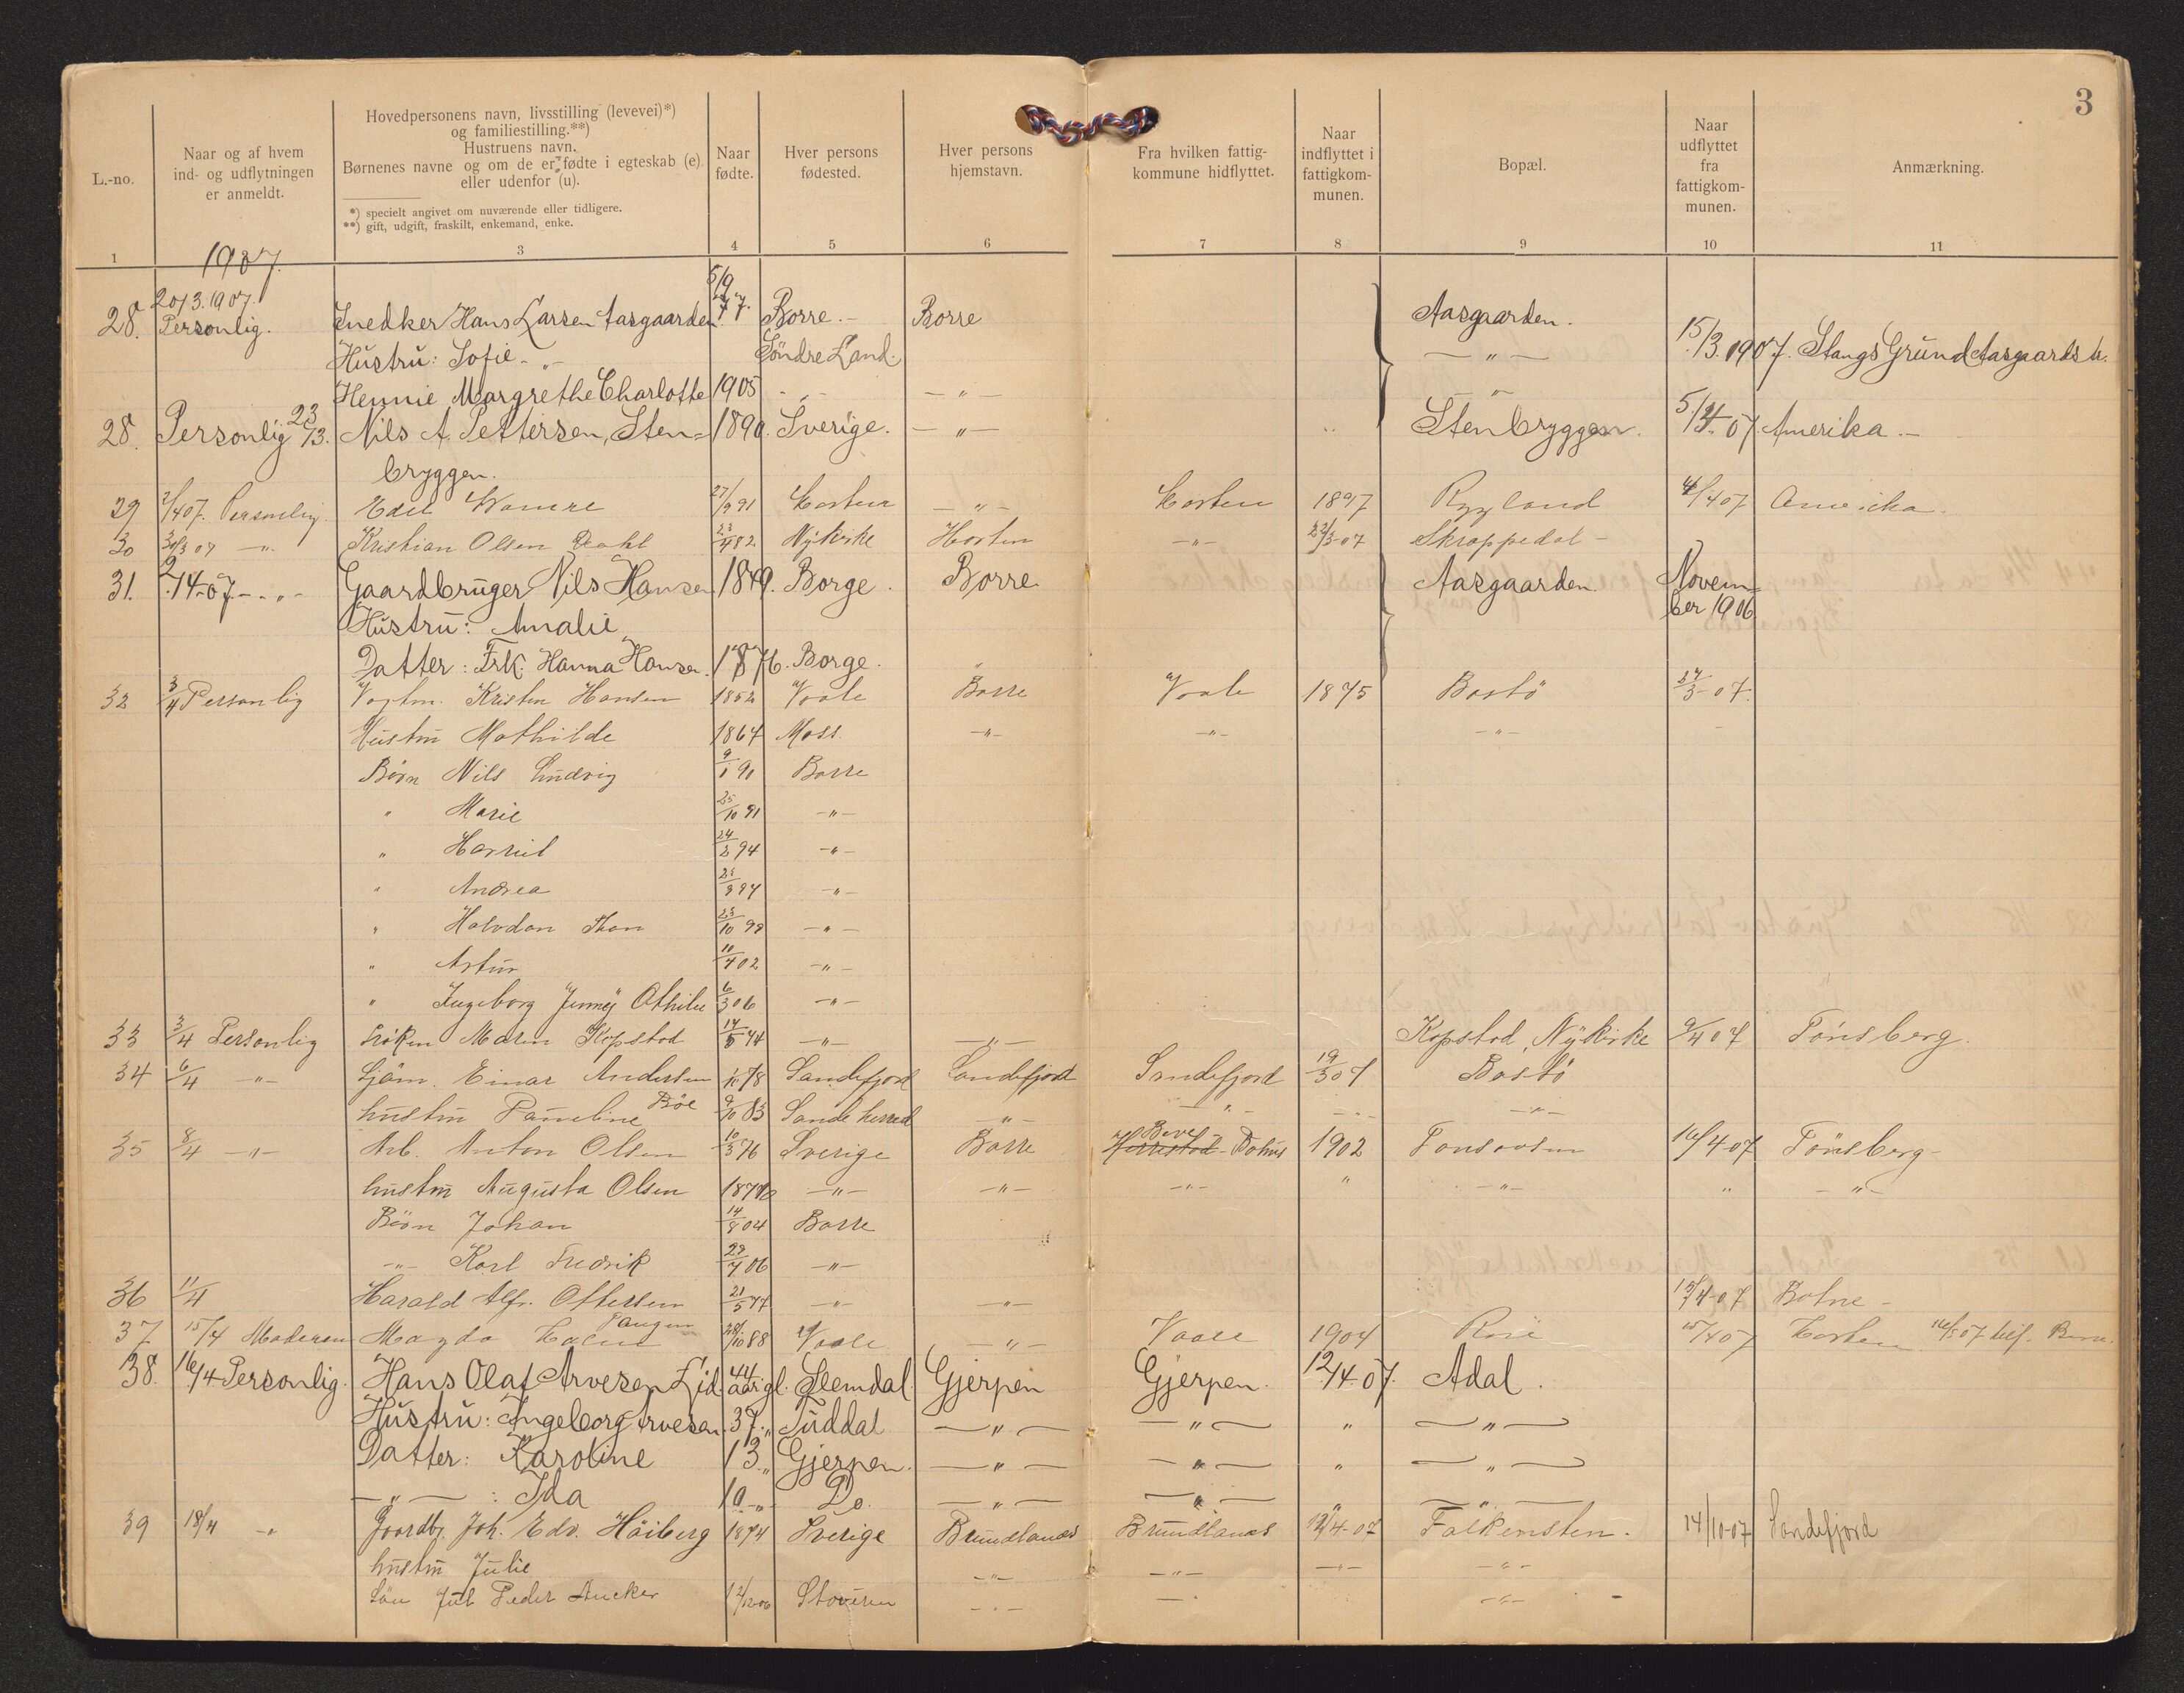 3
L.-no.
Naar og af hvem ind- og udflytningen er anmeldt.
Hovedpersonens navn, livsstilling (levevei)*) og familiestilling.**) Hustruens navn. Børnenes navne og om de er fødte i egteskab (e) eller udenfor (u).
*) specielt angivet om nuværende eller tidligere.
**) gift, udgift, fraskilt, enkemand, enke.
Naar fødte.
Hver persons fødested.
Hver persons hjemstavn.
Fra hvilken fattigkommune hidflyttet.
Naar indflyttet i fattigkommunen.
Bopæl.
Naar udflyttet fra fattigkommunen.
Anmærkning.
1 2 3 4 5 6 7 8 9 10 11
1907.
28. 20/3.1907. Personlig. Snedker Hans Larsen Aasgaarden 5/9 77. Borre.- Borre Aasgaarden.
Hustru: Sofie -„- Söndre Land. -„- 15/3.1907. Stangs Grund Aasgaards
Hennie Margrethe Charlotte 1905 -„- -„- -„-
28. Personlig 23/3. Nils A. Pettersen, Sten= 1890. Sverige. -„- Stenbryggen. 5/4.07. Amerika.-
bryggen.
29 2/4 07. Personlig 27/9 91 Horten -„- Horten 1897 Rygland 4/4 07 Amerika.
30 30/3 07 -„- Kristian Olsen Dahl 23/4 82 Nykirke Horten -„- 22/3-07 Skroppedal -
31. 2/4-07-„- Gaardbruger Nils Hansen 1849. Borge. Borre. Aasgaarden. Novem=
Hustru: Amalie ber 1906
Datter: Frk. Hanna Hansen. 1876. Borge.
32 3/4 Personlig Vogtm. Kristen Hansen 1852 Vaale Borre Vaale 1875 Bastö 27/3-07.
Hustru Mathilde 1864 Moss. -„- -„- -„- -
Börn Nils Ludvig 9/1 90 Borre
„ Marie 25/10 91 -„-
„ 24/2 94 -„-
„ Andrea -„-
„ Halvdan Thon -„-
„ Artur -„-
„ Ingeborg Jenny Othilie 6/3 06 -„-
33 3/4 Personlig Fröken Maren Kopstad -„- -„- Kopstad, Nykirke 9/4 07 Tönsberg.
34 6/4 -„- Sjöm. Einar Andersen 78 Sandefjord Sandefjord Sandefjord 19/3 07 Bastö
Böe
hustru Pauline 9/10 83 Sandeherred -„- -„- -„- -„-
35 8/4 -„- Arb. Anton Olsen 10/3 76 Sverige Borre 1902 16/4-07 Tönsberg-
hustru Augusta Olsen -„- -„- -„- „ -„- „ -„-
Börn Johan 14/8 04 Borre
-„- Karl Fredrik -„-
36 11/4 Harald Alfr. Ottersen 21/5 -„- -„- Botne-
37 15/4 Moderen Magda 88 Vaale -„- Vaale 1904 15/4 07 Horten
38. 16/4 Personlig. Hans Olaf Arvesen Lid. 44 aar gl. Slemdal. Gjerpen Gjerpen. 12/4.07. Adal.
Hustru: Ingeborg Arvesen. 37„ Tuddal -„- -„- „ -„-
Datter: Karoline 13„ Gjerpen. -„- -„- „ -„-
-„-: Ida 10-„- Do. -„- -„- -„-
39 18/4 „ Gaardbr. Joh. Edv. Höiberg 1874 Sverige Brunlanæs Brunlanæs 12/4-07 Falkensten. 14/10-07 Sandefjord
hustru Julie -„- -„- -„- -„-
Sön Peder -„- -„- -„-